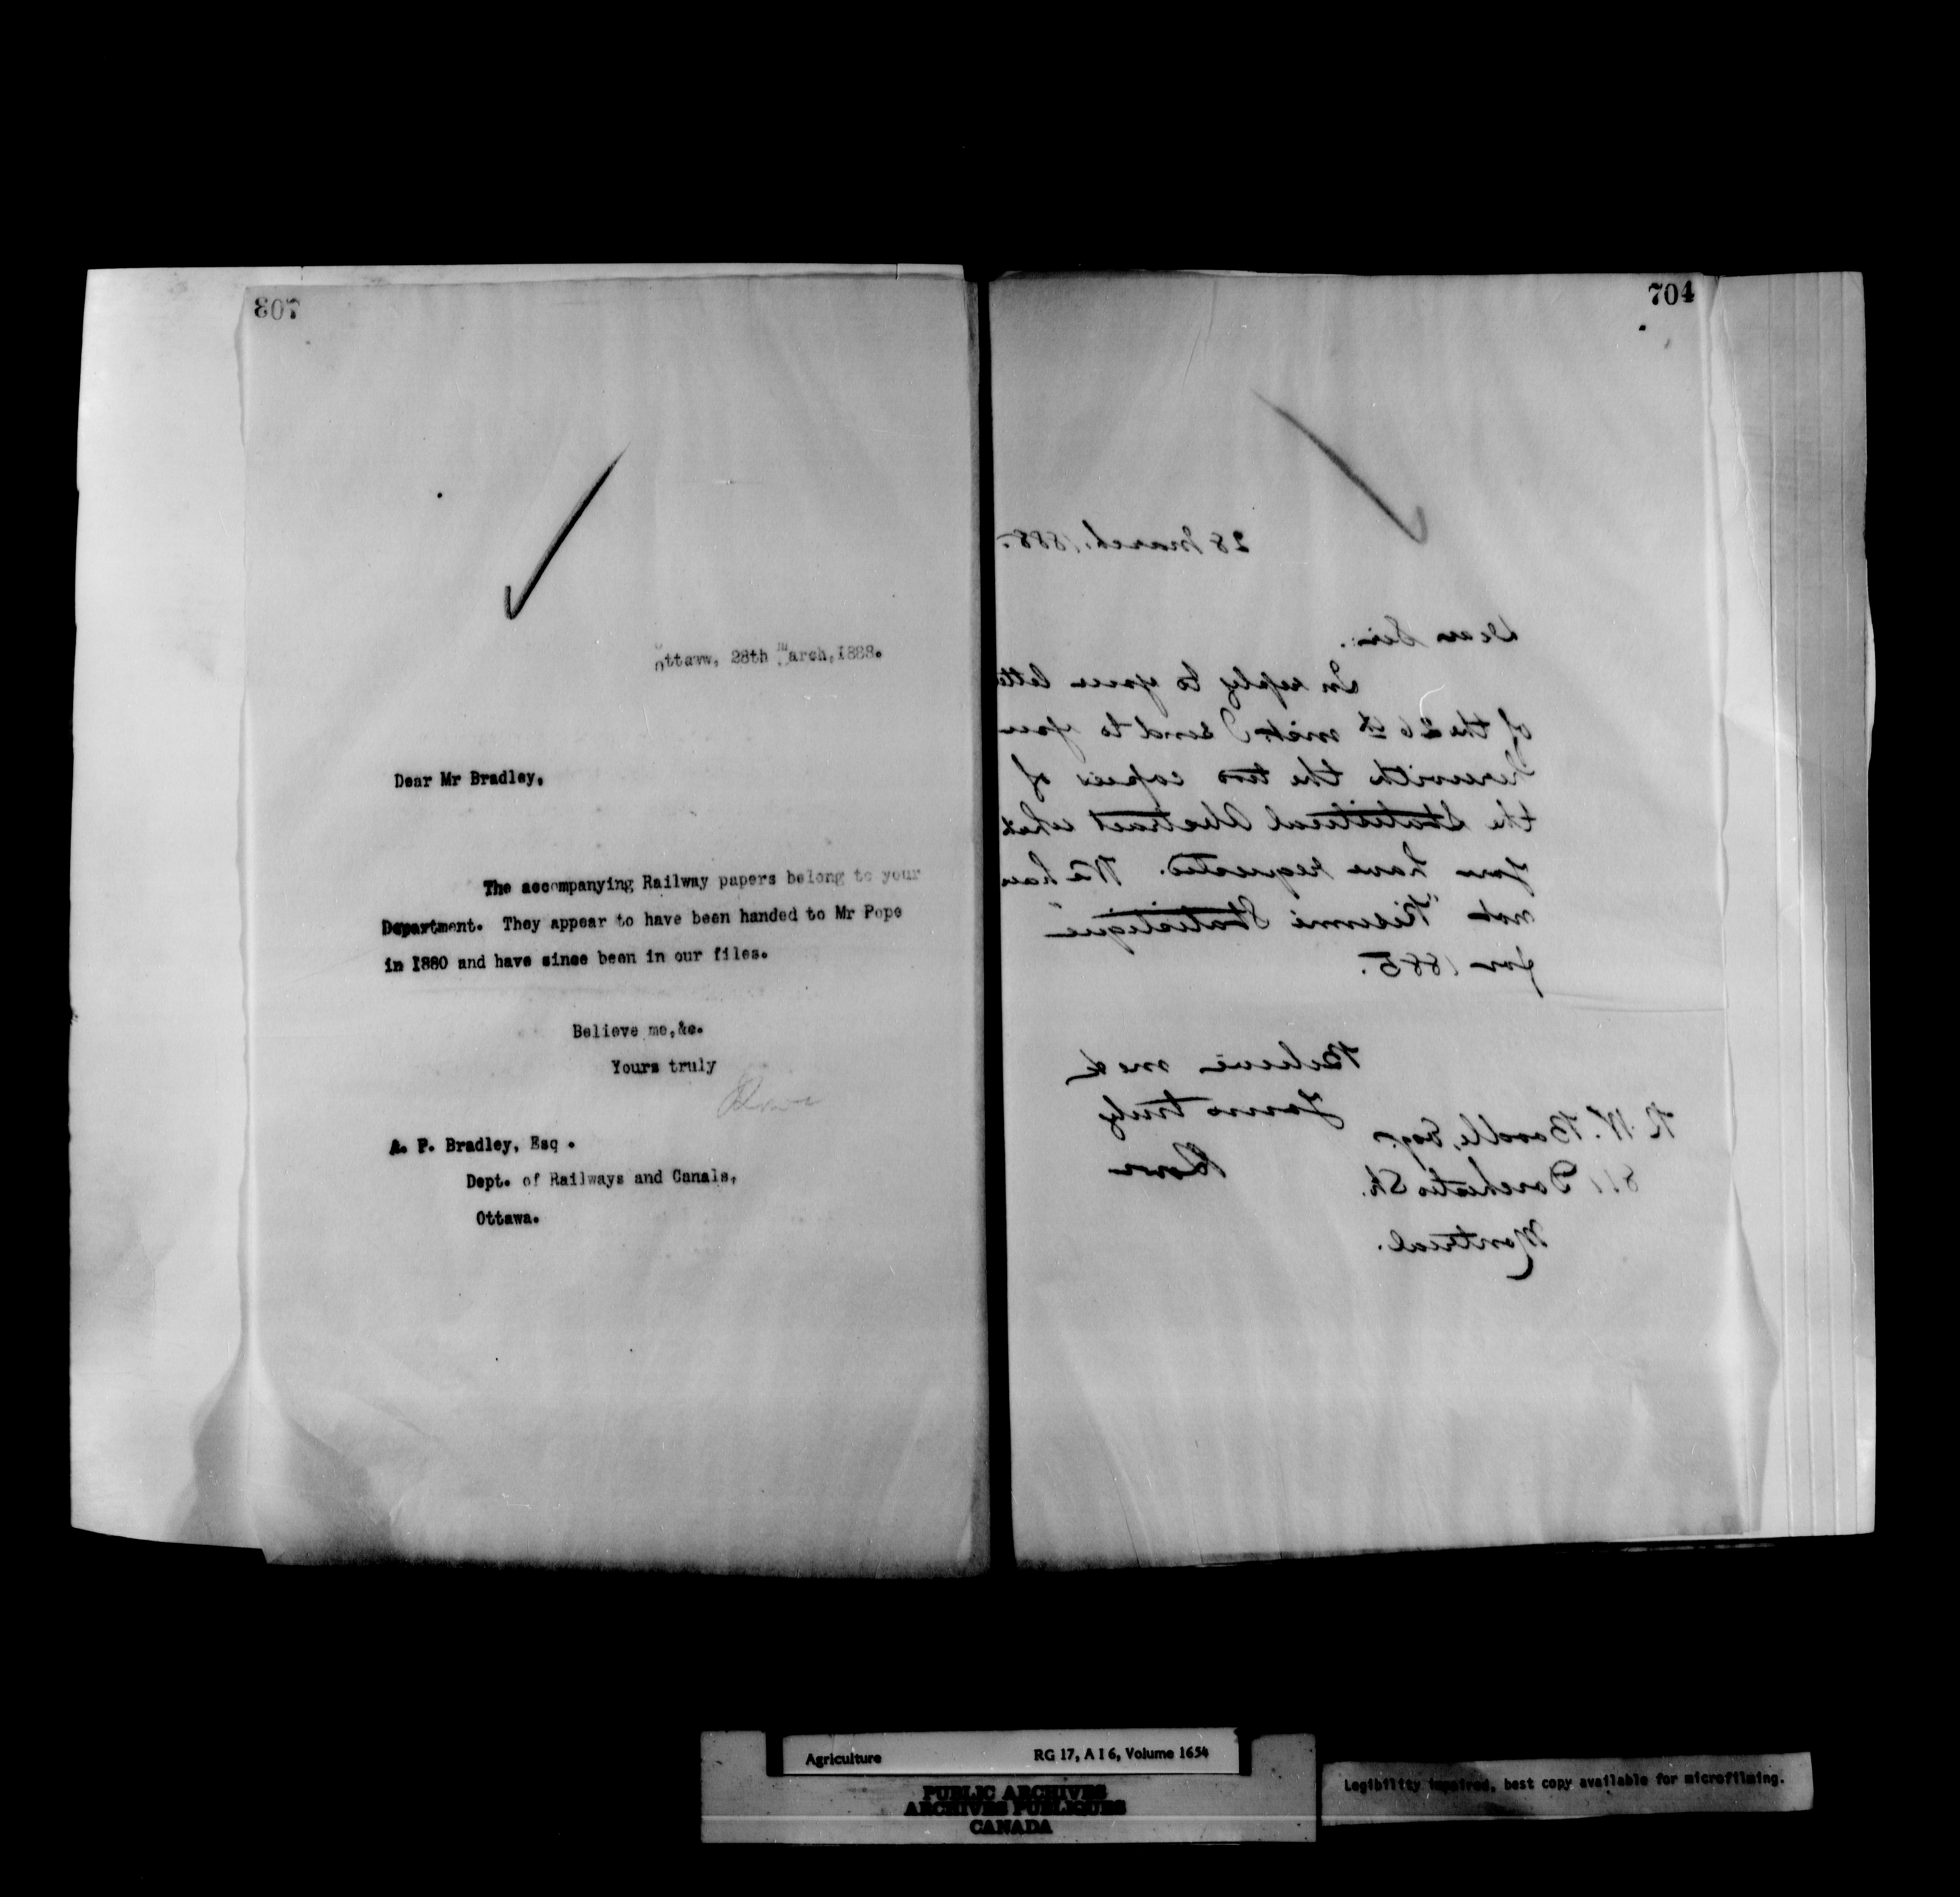 703
Ottavw, 28th March, 1888.
Dear Mr Bradley,
The accompanying Railway papers belong to your
Department. They appear to have been handed to Mr Pope
in 1880 and have since been in our files.
Believe me,&c.
Yours truly
A. P. Bradley, Esq.
Dept. of Railways and Canals,
Ottawa.
704
28 March, 1888.
Dear Sir.
In reply to your lette
of the 26th inst I send to you
herewith the two copies of
the Statistical Abstract which
you have requested. We have
not "Résumé Statistique"
for 1885.
Believe me &
Yours truly
R. W. Boodle, Esq.
811 Dorchester St.
Montreal.
Agriculture
RG 17, A I 6, Volume 1654
PUBLIC ARCHIVES
ARCHIVES PUBLIQUES
CANADA
Legibility impaired, best copy available for microfilming.